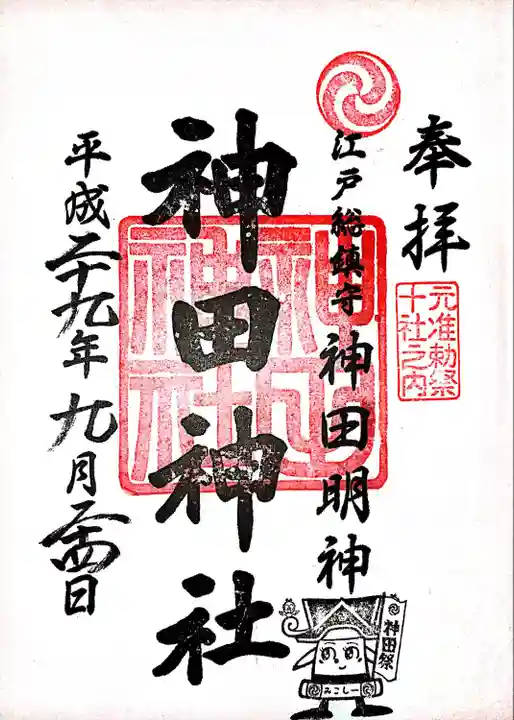 奉拝
元准勅祭
十社之内
江戸総鎮守 神田明神
神田神社
神田神社
平成二十九年九月二十四日
神田祭
みこしー